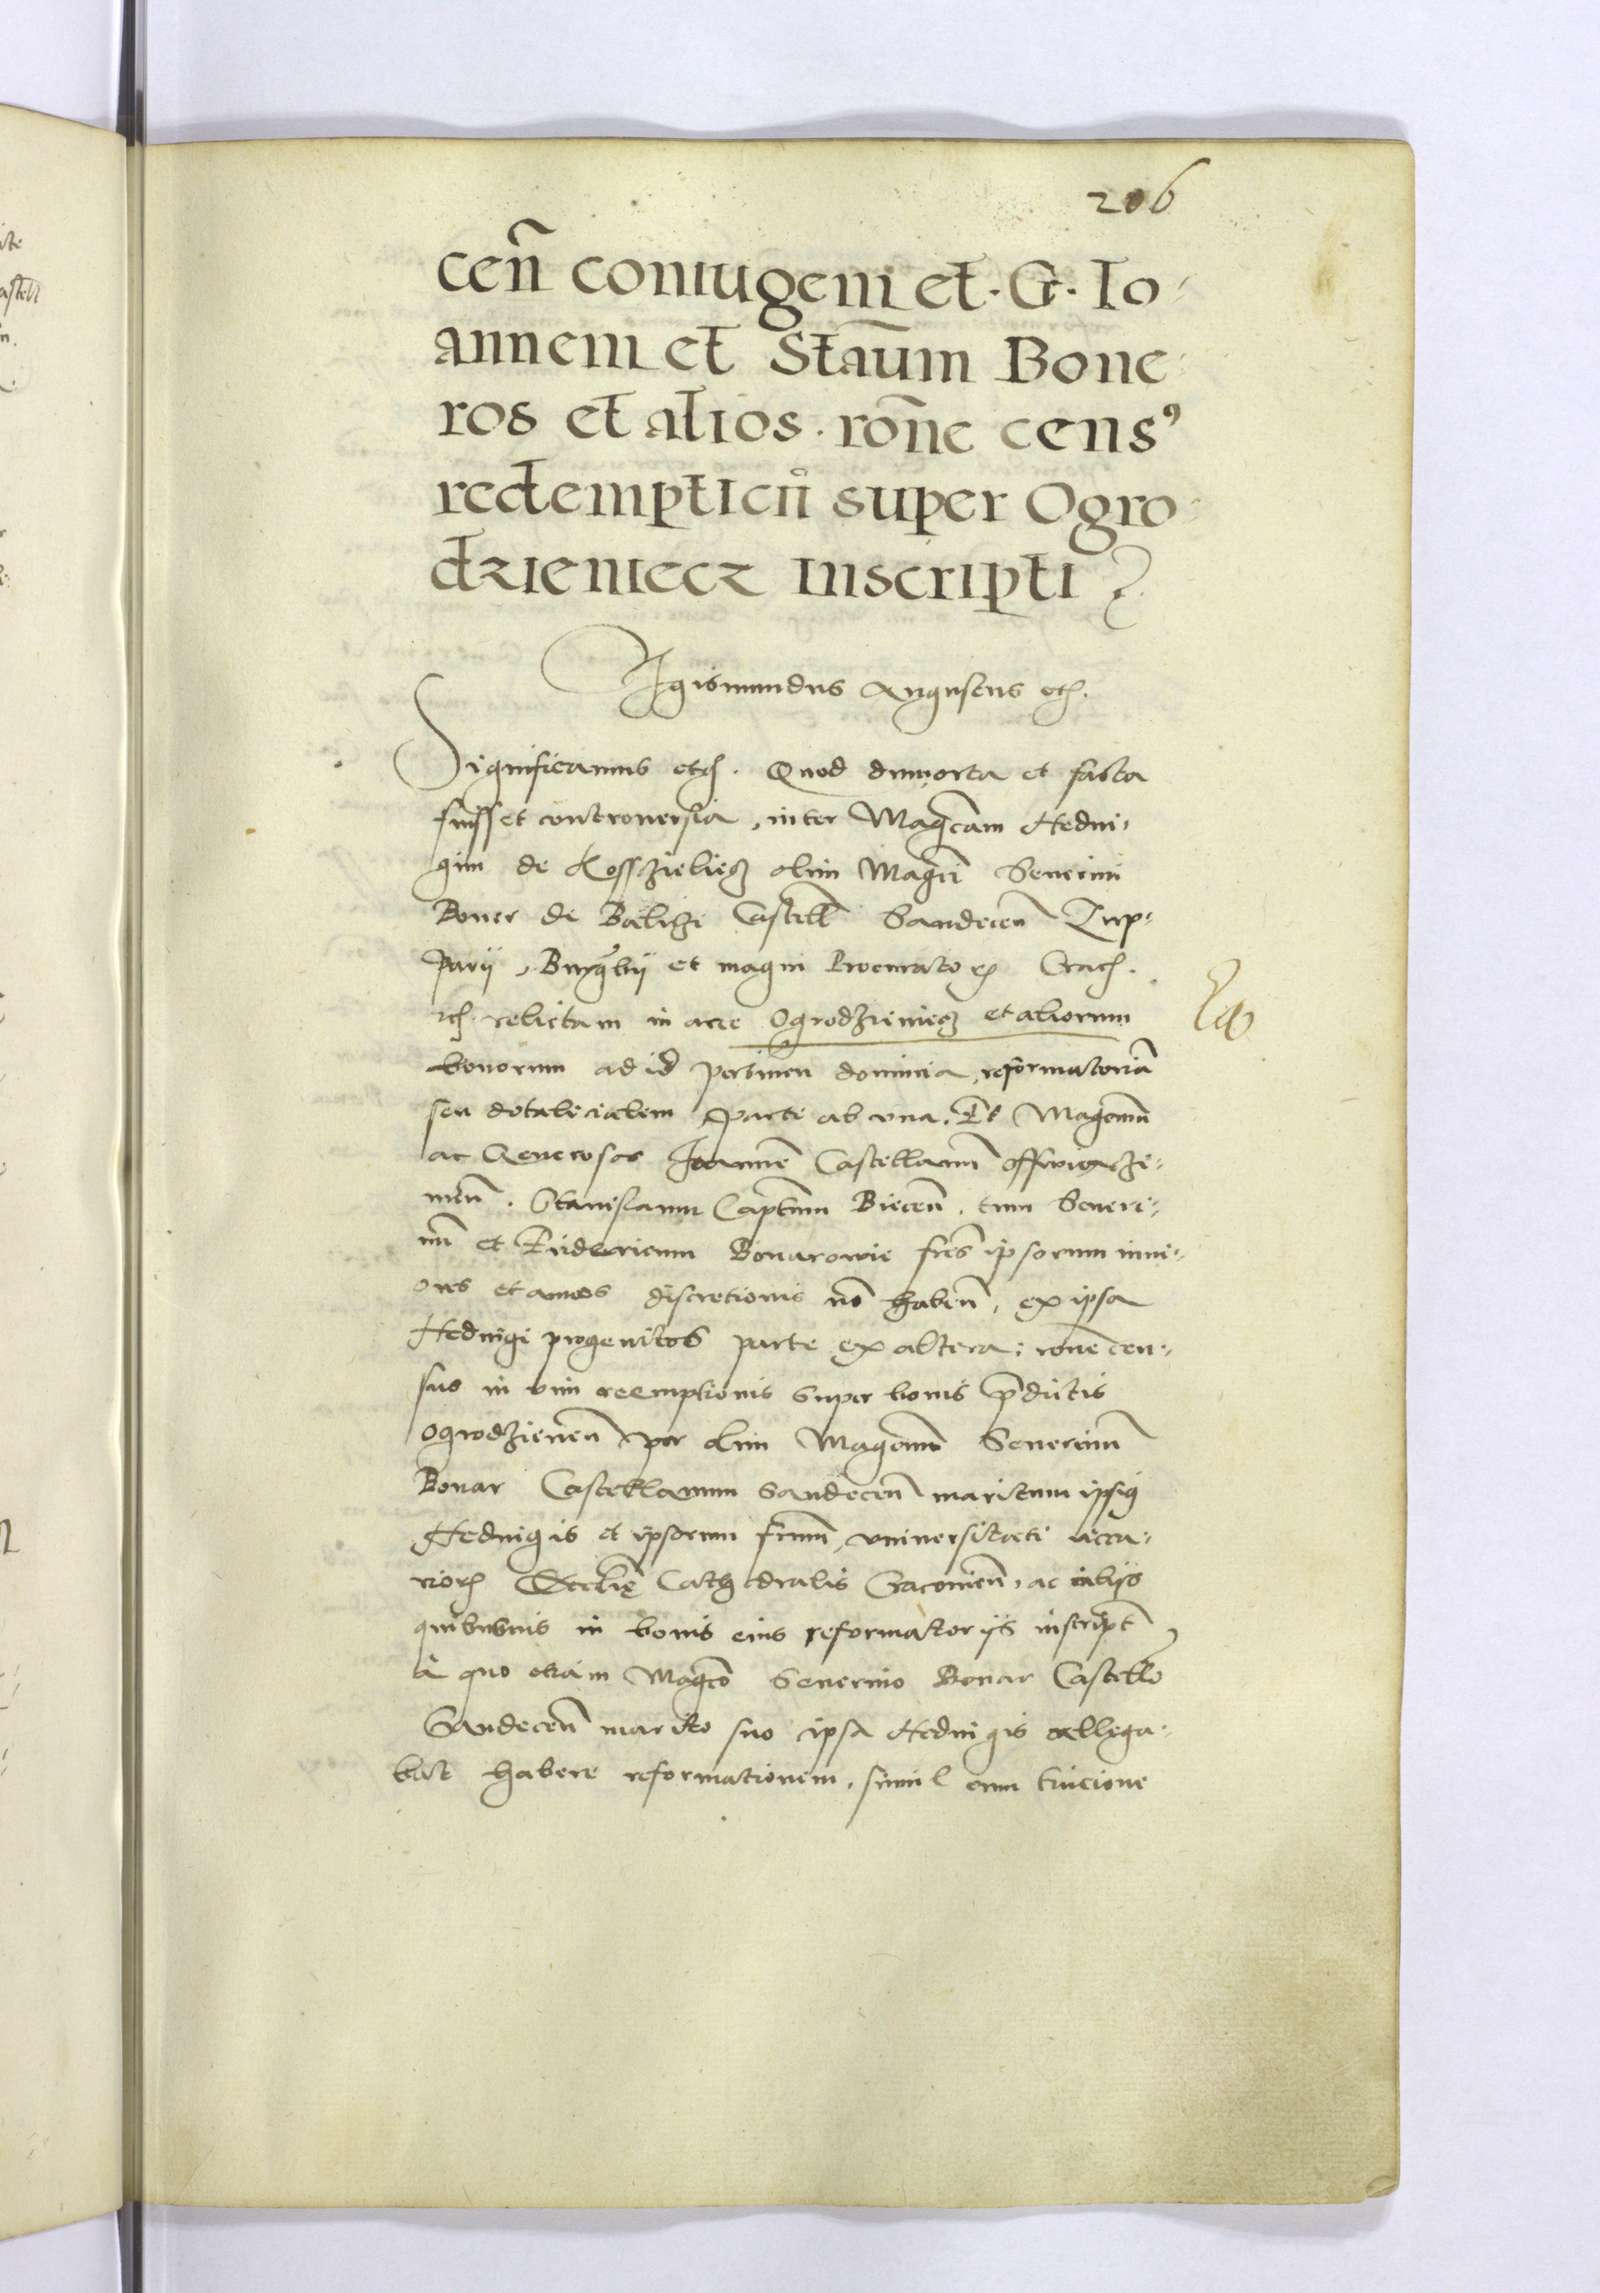 206
cen̄ coniugem et · G · Io-
annem et Staūm Bone-
ros et alios · rōne cens9
redempticii super Ogro-
dzieniecz inscripti
Sigismundus Augustus etc.
Significamus etc. Quod dum orta et facta
fuisset controuersia, inter Magcām Hedui-
gim de Kosszieliecz olim Magci Seuerini
Boner de Balicze Castell Sandecen̄ Zup-
parij, Burgrbij et magni Procuratoris Crac.
etc. relictam in arce Ogrodzieniecz et aliorum
bonorum ad id pertinen dominia, reformatoriā
seu dotalicialem parte ab vna. Et Magcum
ac Generosos Ioannē Castellanum Osswiaczi-
men̄. Stanislaum Captum Biecen̄. tum Seueri-
nū et Fridericum Bonarowie frēs ipsorum iuni-
ores et annos discretionis nō haben̄, ex ipsa
Heduigi progenitos parte ex altera: ronē cen-
sus in vim reemptionis super bonis pdictis
Ogrodzienen̄ per olim Magcum Seuerinum
Bonar Castellanum Sandecen̄ maritum ipsius
Heduigis et ipsorum frum̄, vniuersitati vicca-
riorum Ecclīe Cathedralis Cracouien̄, ac alijs
quibusuis in bonis eius reformatorijs inscript
a quo etiam Magco Seuerino Bonar Castello
Sandecen̄ marito suo ipsa Heduigis allega-
bat habere reformationem, simul cum tuicione